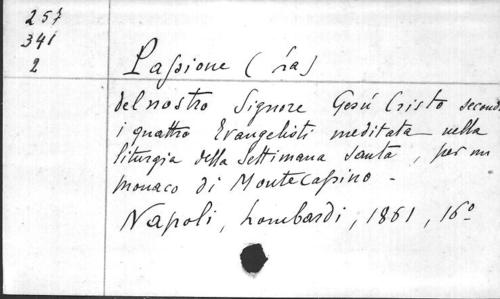 257
341
2
Passione (La)
del nostro Signore Gesù Cristo second
i quattro Evangelisti meditata nella
liturgia della Settimana Santa, per un
monaco di Montecassino -
Napoli, Lombardi, 1861, 16º